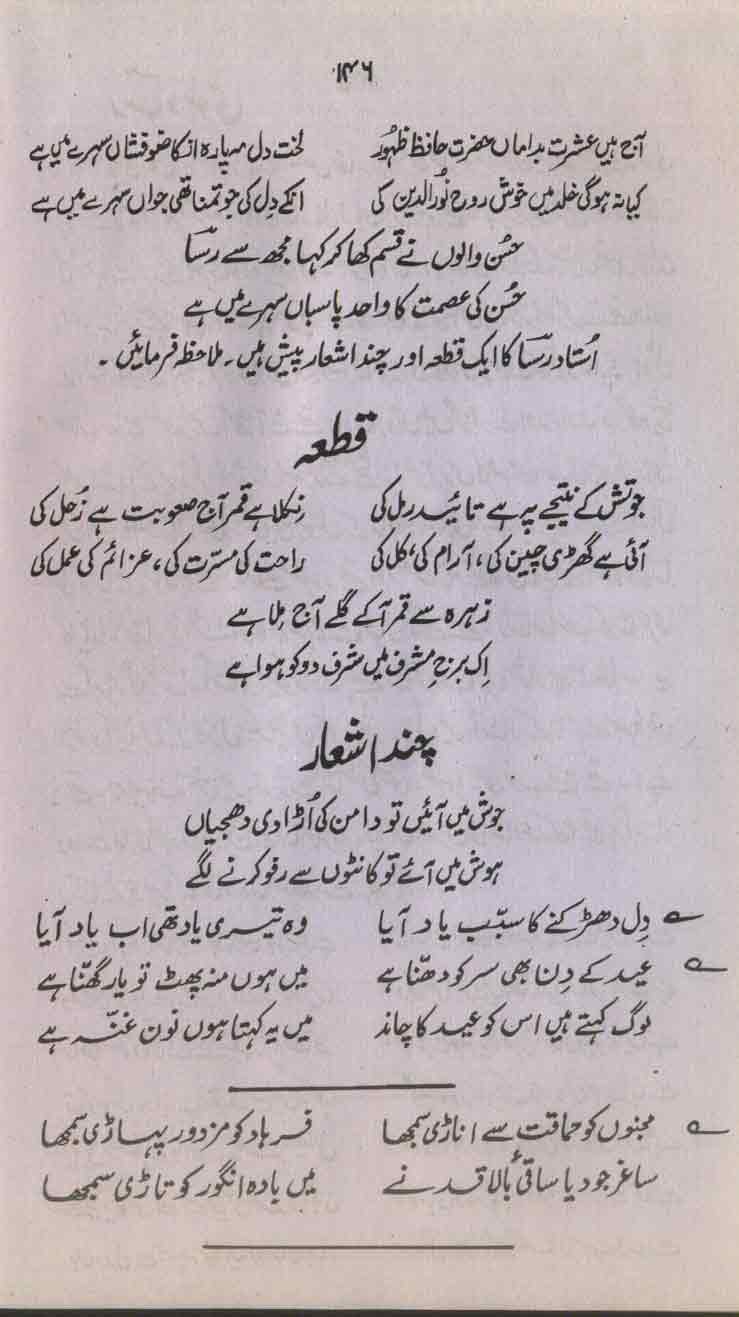 ۱۴۶
آج ہیں عشرت بداماں حضرت حافظ ظہور لخت دل مہپارہ انکا ضوفشاں سہرے میں ہے
کیا نہ ہوگی خلد میں خوش روح نورالدین کی انکے دل کی جو تمنا تھی جواں سہرے میں ہے
حسن والوں نے قسم کھا کر کہا مجھ سے رسا
حسن کی عصمت کا واحد پاسباں سہرے میں ہے
اُستاد رسا کا ایک قطعہ اور چند اشعار پیش ہیں۔ ملاحظہ فرمائیں۔
قطعہ
جوتش کے نتیجے پہ ہے تائید رمل کی نکلا ہے قمر آج صعوبت ہے زُحل کی
آئی ہے گھڑی چین کی، آرام کی، کل کی راحت کی مسرّت کی، عزائم کی عمل کی
زہرہ سے قمر آکے گلے آج مِلا ہے
اِک برجِ مشرف میں شرف دو کو ہوا ہے
چند اشعار
جوش میں آئیں تو دامن کی اُڑا دی دھجیاں
ہوش میں آئے تو کانٹوں سے رفو کرنے لگے
دِل دھڑکنے کا سبب یاد آیا وہ تیسری یاد تھی اب یاد آیا
عید کے دِن بھی سر کو دھنّا ہے میں ہوں منہ پھٹ تو یار گھنّا ہے
لوگ کہتے ہیں اس کو عید کا چاند میں یہ کہتا ہوں نون غنّہ ہے
مجنوں کو حماقت سے اناڑی سمجھا فرہاد کو مزدور پہاڑی سمجھا
ساغر جو دیا ساقیٔ بالا قد نے میں بادہ انگور کو تاڑی سمجھا